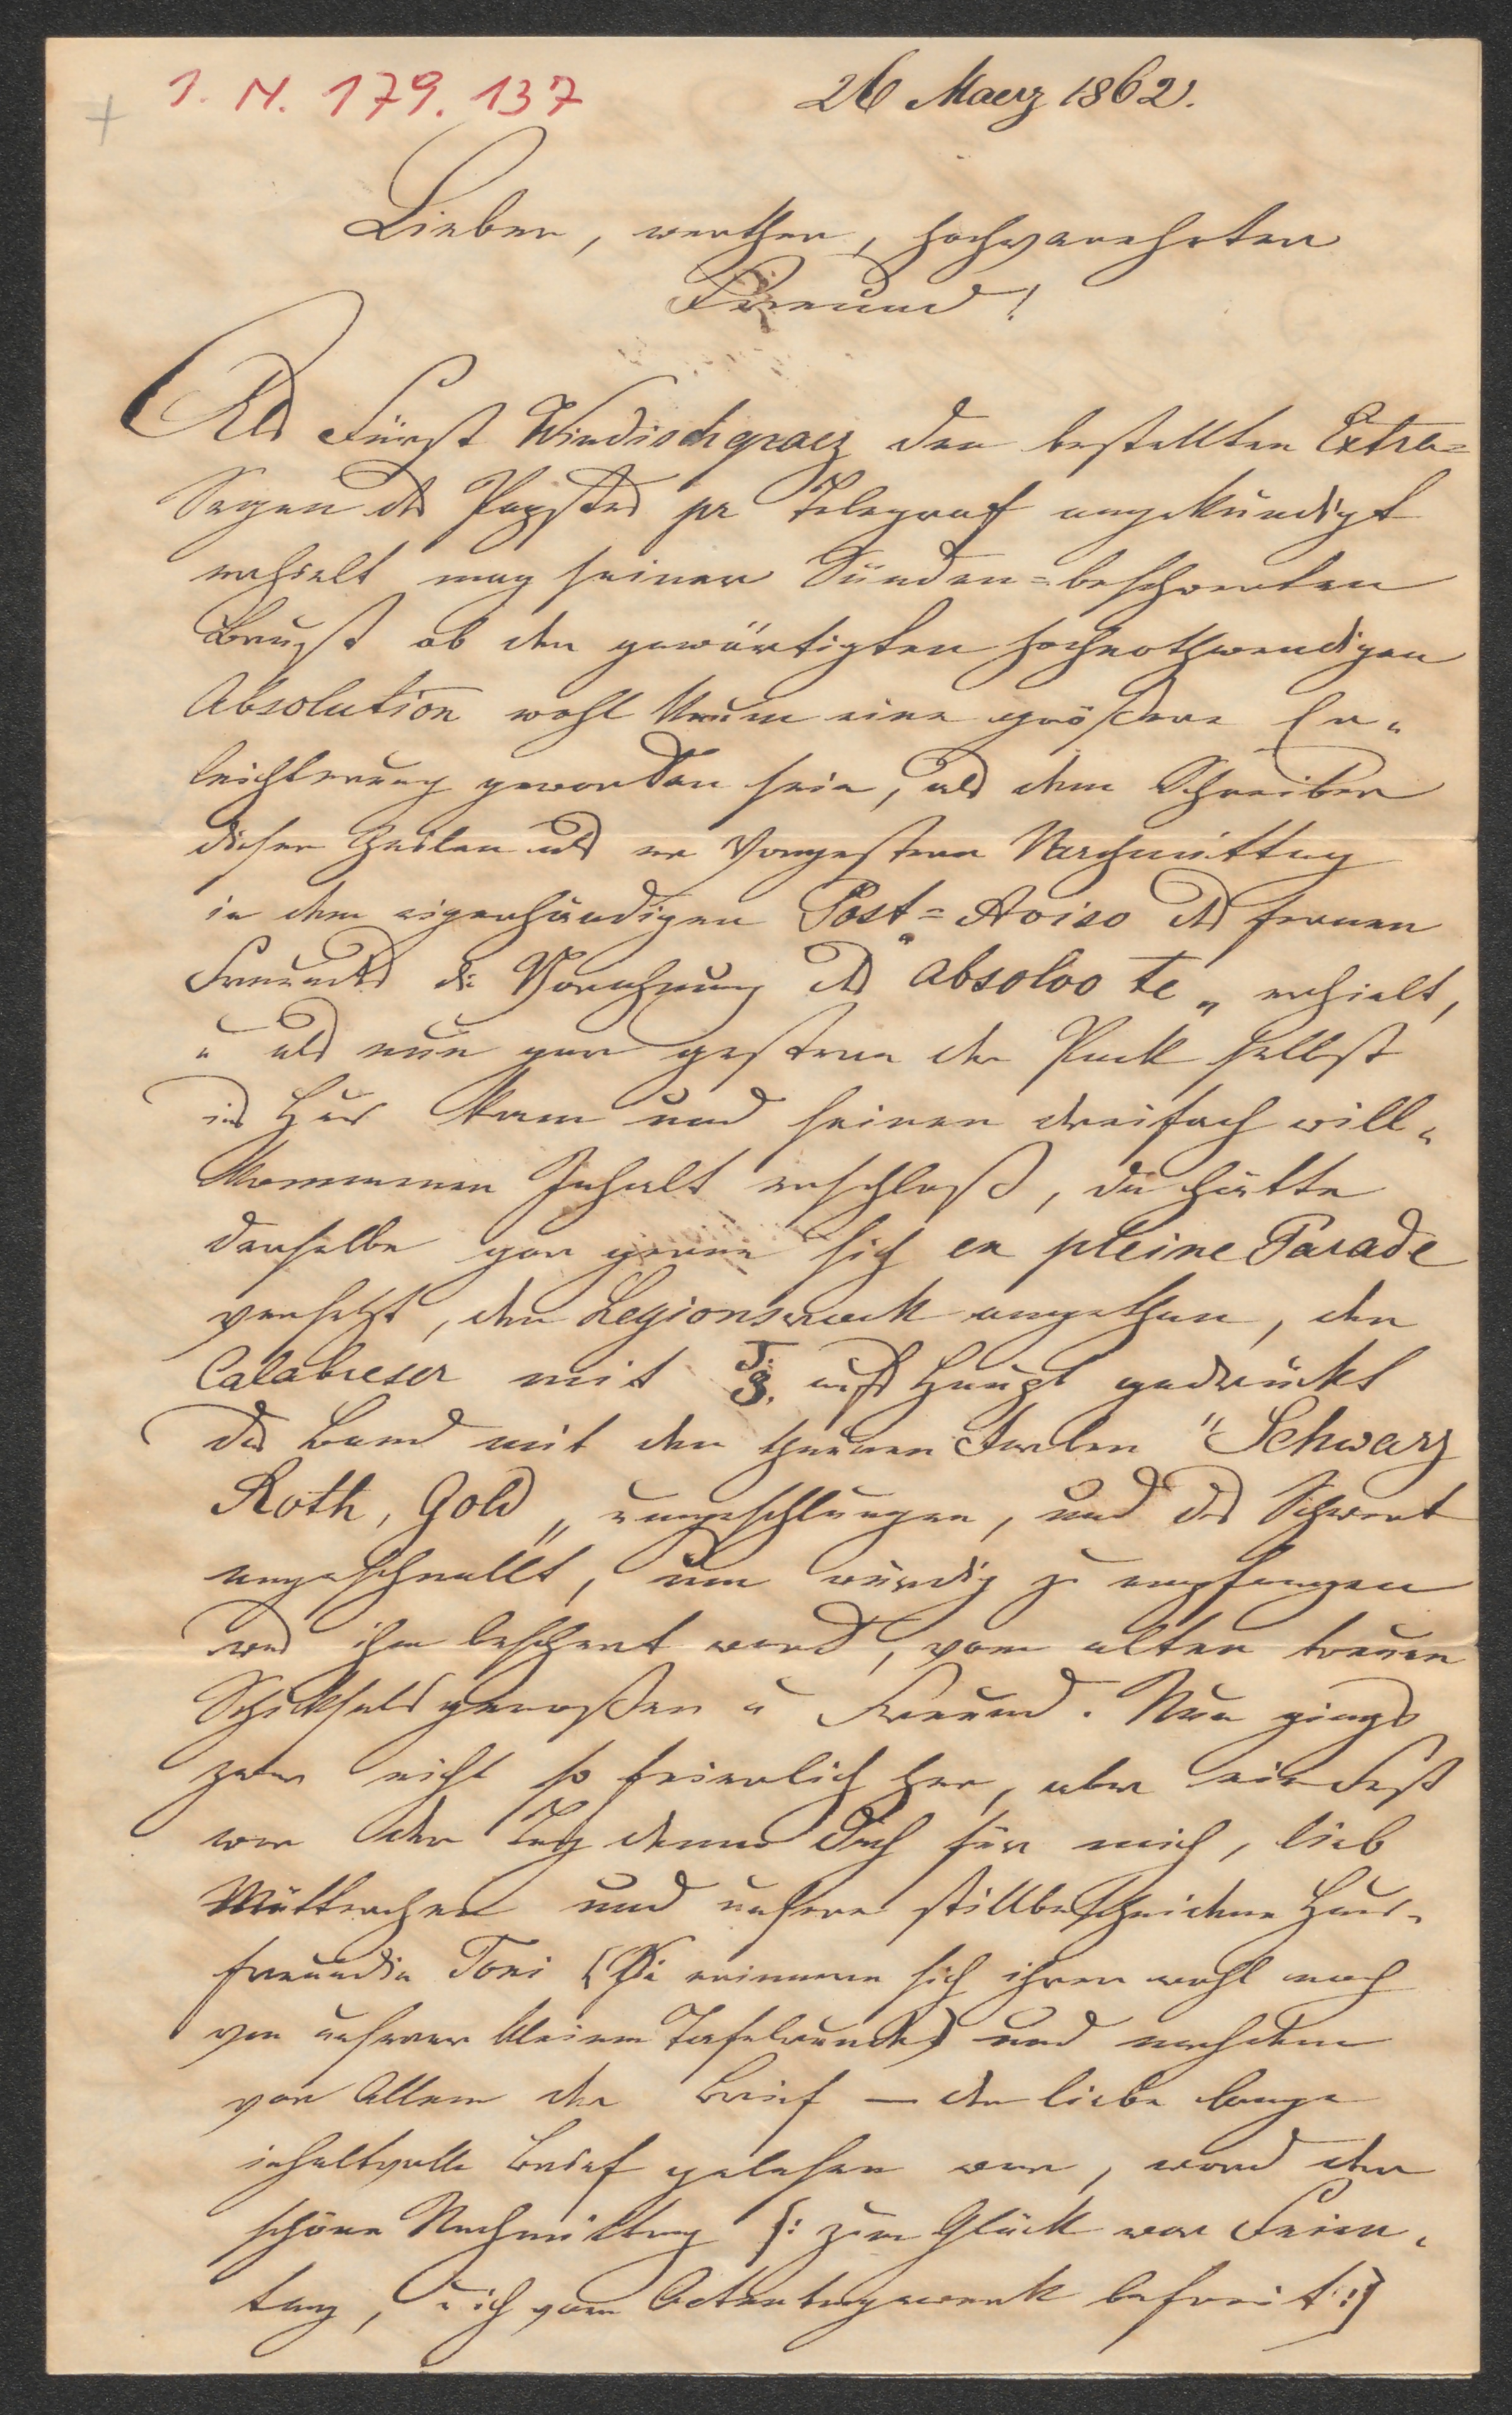 I. N. 179.137
26 Maerz 1862.
Lieber, werther, hochverehrter
Freund!
Als Fürst Windischgraez den bestellten Extra=
Segen des Papstes pr Telegraf angekündigt
erhielt mag seiner Sünden=beschwerten
Brust ob der gewärtigten hochnothwendigen
Absolution wohl kaum eine größere Er-
leichterung geworden sein, als dem Schreiber
dieser Zeilen als er vorgestern Nachmittag
in dem eigenhändigen Post=Aviso des fernen
Freundes die Vorahnung des "absolvo te" erhielt,
u als nun gar gestern der Pack selbst
ins Haus kam und seinen dreifach will-
kommenen Inhalt erschloß, da hätte
derselbe gar gerne sich en pleine Parade
versetzt, den Legionsrock angethan, den
Calabreser mit aufs Haupt gedrückt
das Band mit den theuren Farben "Schwarz
Roth, Gold" umgeschlungen, und das Schwert
umgeschnallt, um würdig zu empfangen
was ihm beschert ward, vom alten treuen
Schicksalsgenoßen u Freund. Nun gings
zwar nicht so feierlich her, aber ein Fest
war der Tag denno doch für mich, lieb
Mütterchen und unsere stillbescheidene Haus-
freundin Toni (Sie erinnern sich ihrer wohl noch
von unserer kleinen Tafelrunde) und nachdem
vor Allem der Brief — der liebe lange
inhaltvolle Brief gelesen war, ward der
schöne Nachmittag (: zum Glück war Feier-
tag, u ich vom Actentagwerk befreit :)